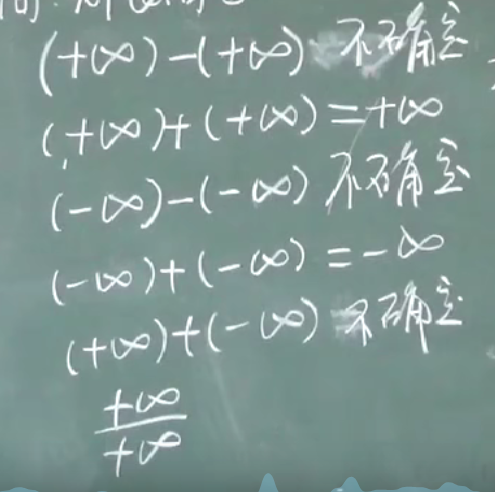 (+∞)-(+∞) 不确定
(+∞)+(+∞)=+∞
(-∞)-(-∞) 不确定
(-∞)+(-∞)=-∞
(+∞)+(-∞) 不确定
+∞
+∞